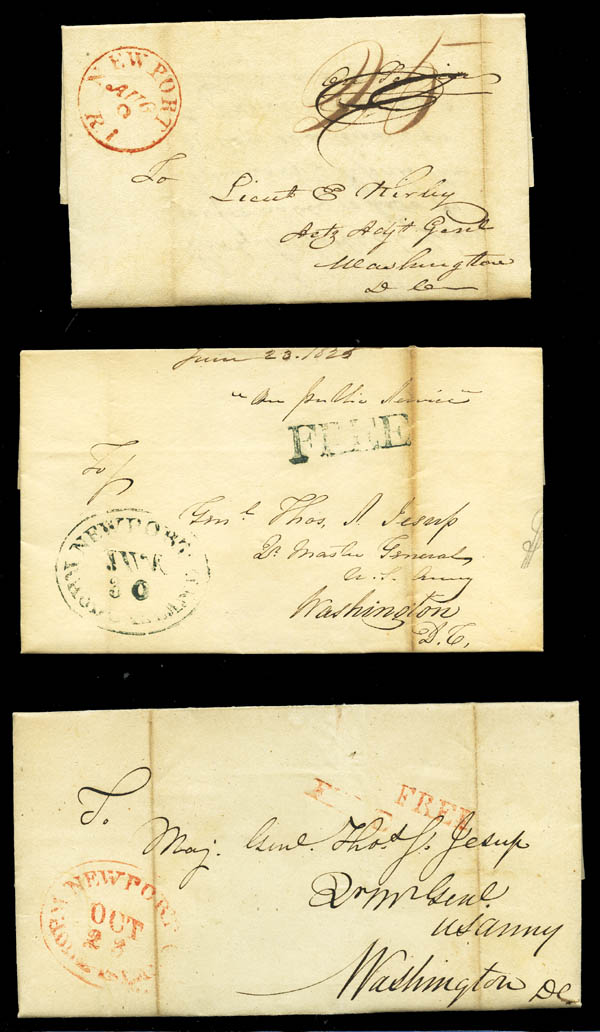 NEWPORT
AUG
8
R I
25
To
Lieut E Kirby
Actg Adjt Genl
Washington
D C
June 23. 1825
"On public Service"
FREE
To
NEWPORT
RHODE ISLAND
JUN
30
Genl. Thos. S. Jesup
Qr Master General
U. S. Army
Washington
D. C,
FREE
To.
Maj. Genl. Thos. S. Jesup
Qr Mr Genl.
US Army
Washington DC
NEWPORT
RHODE ISLAND
OCT
23